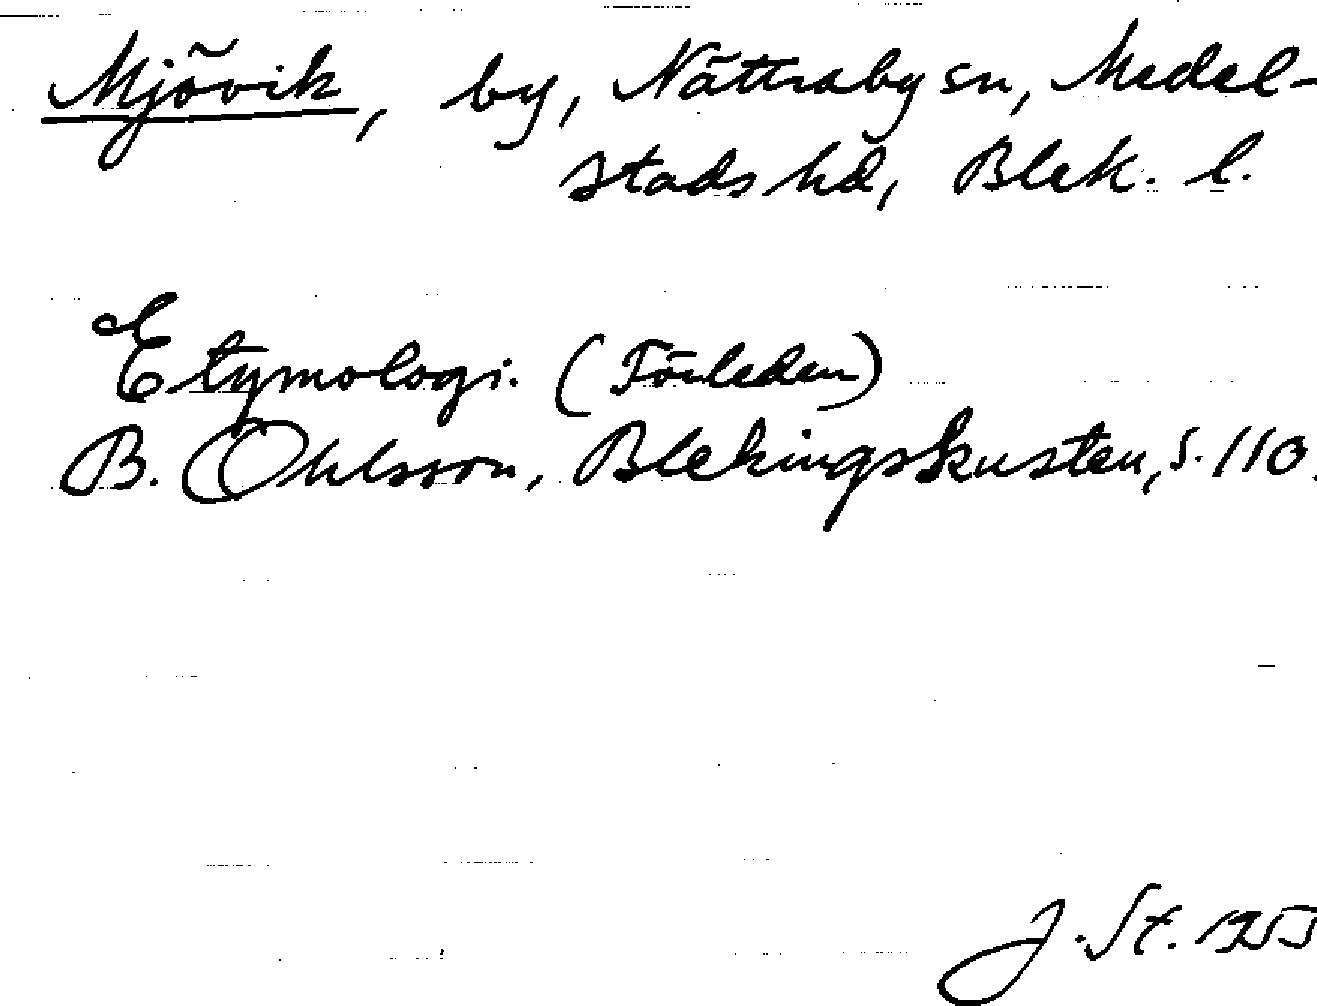 Mjövik, by, Nättraby sn, Medel-
stads hd, Blek. l.
Etymologi. (Förleden)
B. Ohlsson, Blekingskusten, s. 110.
J. St. 1955